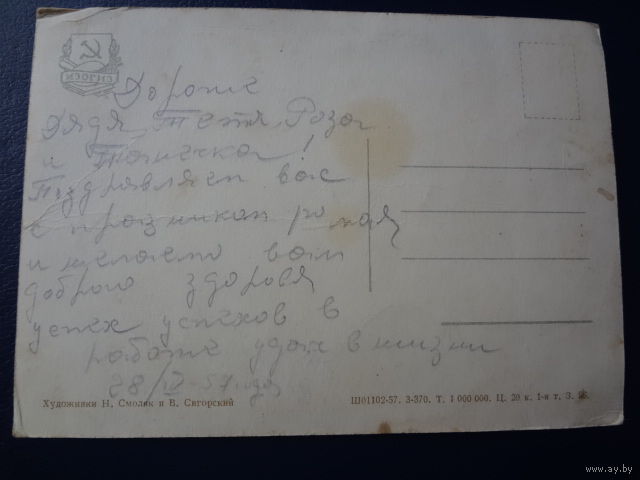 ИЗОГИЗ
Дорогие
Дядя, Тетя, Роза
и Танечка!
Поздравляем вас
с праздником мая
и желаем вам
доброго здоровя
успех успехов в
работе удач в жизни
28/IV-57 года
Художники Н. Смоляк и В. Сигорский
Ш01102-57. З-370. Т. 1 000 000. Ц. 20 к. 1-я т. З.
www.ay.by